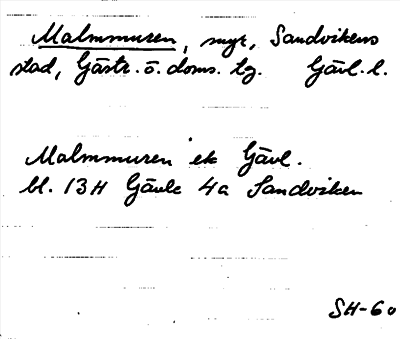 Malmmuren, myr, Sandvikens
stad, Gästr. ö. doms. tg. Gävl. l.
Malmmuren ek Gävl.
bl. 13H Gävle 4a Sandviken
SH-60